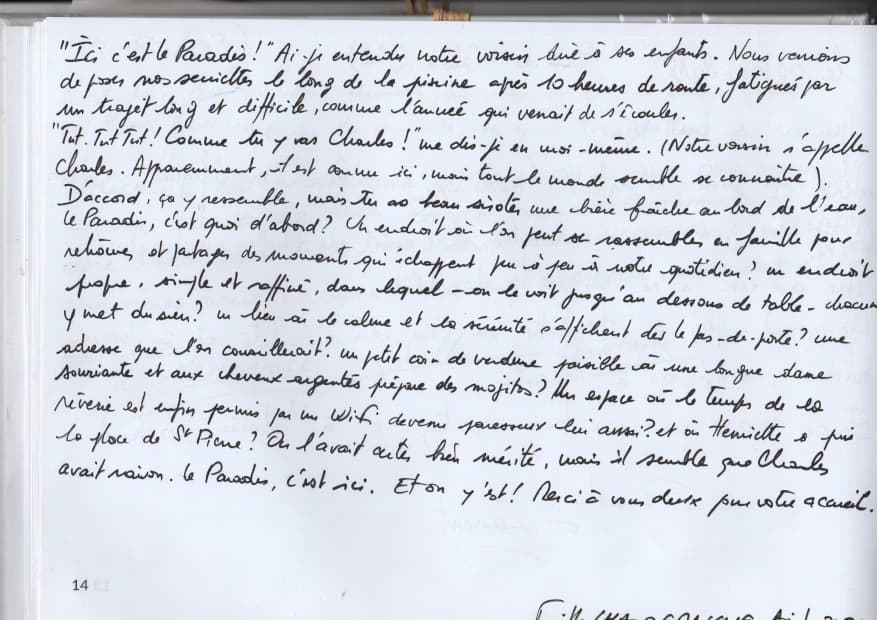 "Ici c'est le Paradis!" Ai-je entendu notre voisin dire à ses enfants. Nous venions
de poser nos serviettes le long de la piscine après 10 heures de route, fatigués par
un trajet long et difficile, comme l'année qui venait de s'écouler.
"Tut. Tut Tut! Comme tu y vas Charles!" me dis-je en moi-même. (Notre voisin s'appelle
Charles. Apparemment, il est comme ici, mais tout le monde semble se connaître).
D'accord, ça y ressemble, mais tu as beau siroter une bière fraîche au bord de l'eau,
le Paradis, c'est quoi d'abord? Un endroit où l'on peut se rassembler en famille pour
retrouver et partager des moments qui échappent peu à peu à notre quotidien? un endroit
propre, simple et raffiné, dans lequel - on le voit jusqu'au dessous de table - chacun
y met du sien? un lieu où le calme et la sérénité s'affichent dès le pas-de-porte? une
adresse que l'on conseillerait? un petit coin de verdure paisible où une longue dame
souriante et aux cheveux argentés prépare des mojitos? Un espace où le temps de la
rêverie est enfin permis par un WiFi devenu paresseux lui aussi? et où Henriette a pris
la place de St Pierre? On l'avait certes bien mérité, mais il semble que Charles
avait raison. Le Paradis, c'est ici. Et on y est! Merci à vous deux pour votre accueil.
14